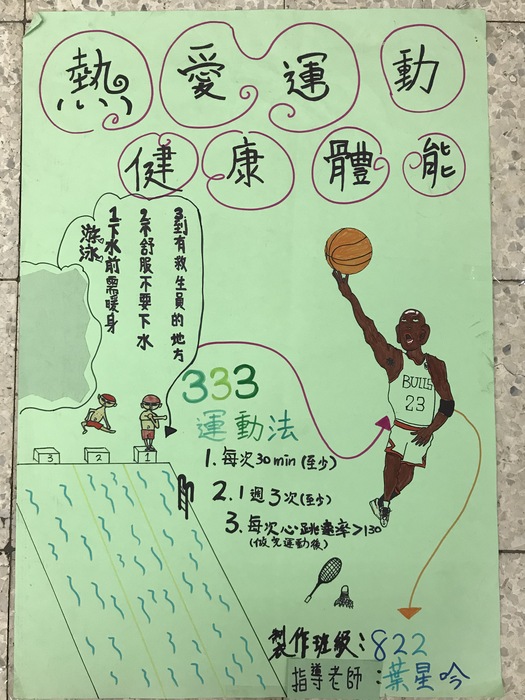 熱愛運動
健康體能
游泳
1.下水前需暖身
2.不舒服不要下水
3.到有救生員的地方
333
運動法
1. 每次30min(至少)
2. 1週3次(至少)
3. 每次心跳速率>130
(做完運動後)
BULLS
23
3
2
1
製作班級:822
指導老師:葉星吟